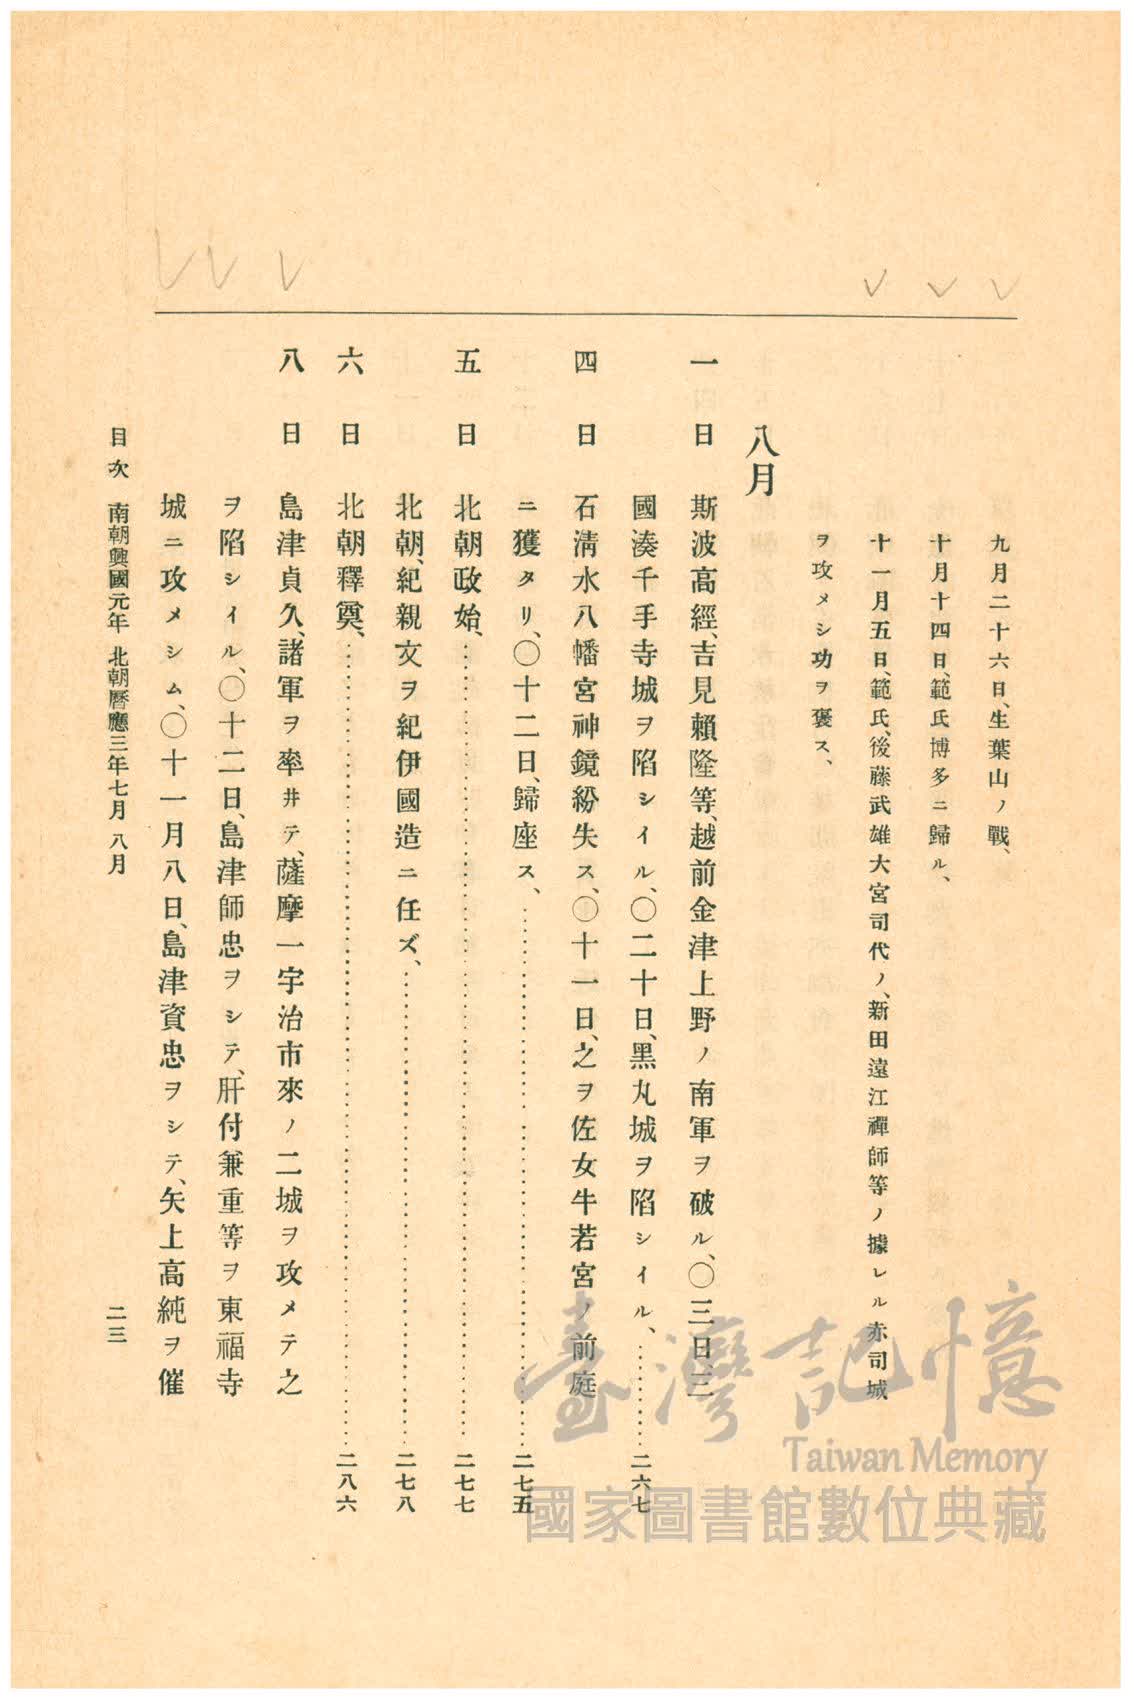 九月二十六日、生葉山ノ戰、
十月十四日、範氏博多ニ歸ル、
十一月五日、範氏、後藤武雄大宮司代ノ、新田遠江禪師等ノ據レル赤司城
ヲ攻メシ功ヲ褒ス、
八月
一日 斯波高經、吉見賴隆等、越前金津上野ノ南軍ヲ破ル、〇三日三
國湊千手寺城ヲ陷シイル、〇二十日、黑丸城ヲ陷シイル、……二六七
四日 石淸水八幡宮神鏡紛失ス、〇十一日、之ヲ佐女牛若宮ノ前庭
ニ獲タリ、〇十二日、歸座ス、……二七五
五日 北朝政始、……二七七
北朝、紀親文ヲ紀伊國造ニ任ズ、……二七八
六日 北朝釋奠、……二八六
八日 島津貞久、諸軍ヲ率井テ、薩摩一宇治市來ノ二城ヲ攻メテ之
ヲ陷シイル、〇十二日、島津師忠ヲシテ、肝付兼重等ヲ東福寺
城ニ攻メシム、〇十一月八日、島津資忠ヲシテ、矢上高純ヲ催
目次 南朝興國元年 北朝曆應三年七月 八月
二三
臺灣記憶
Taiwan Memory
國家圖書館數位典藏